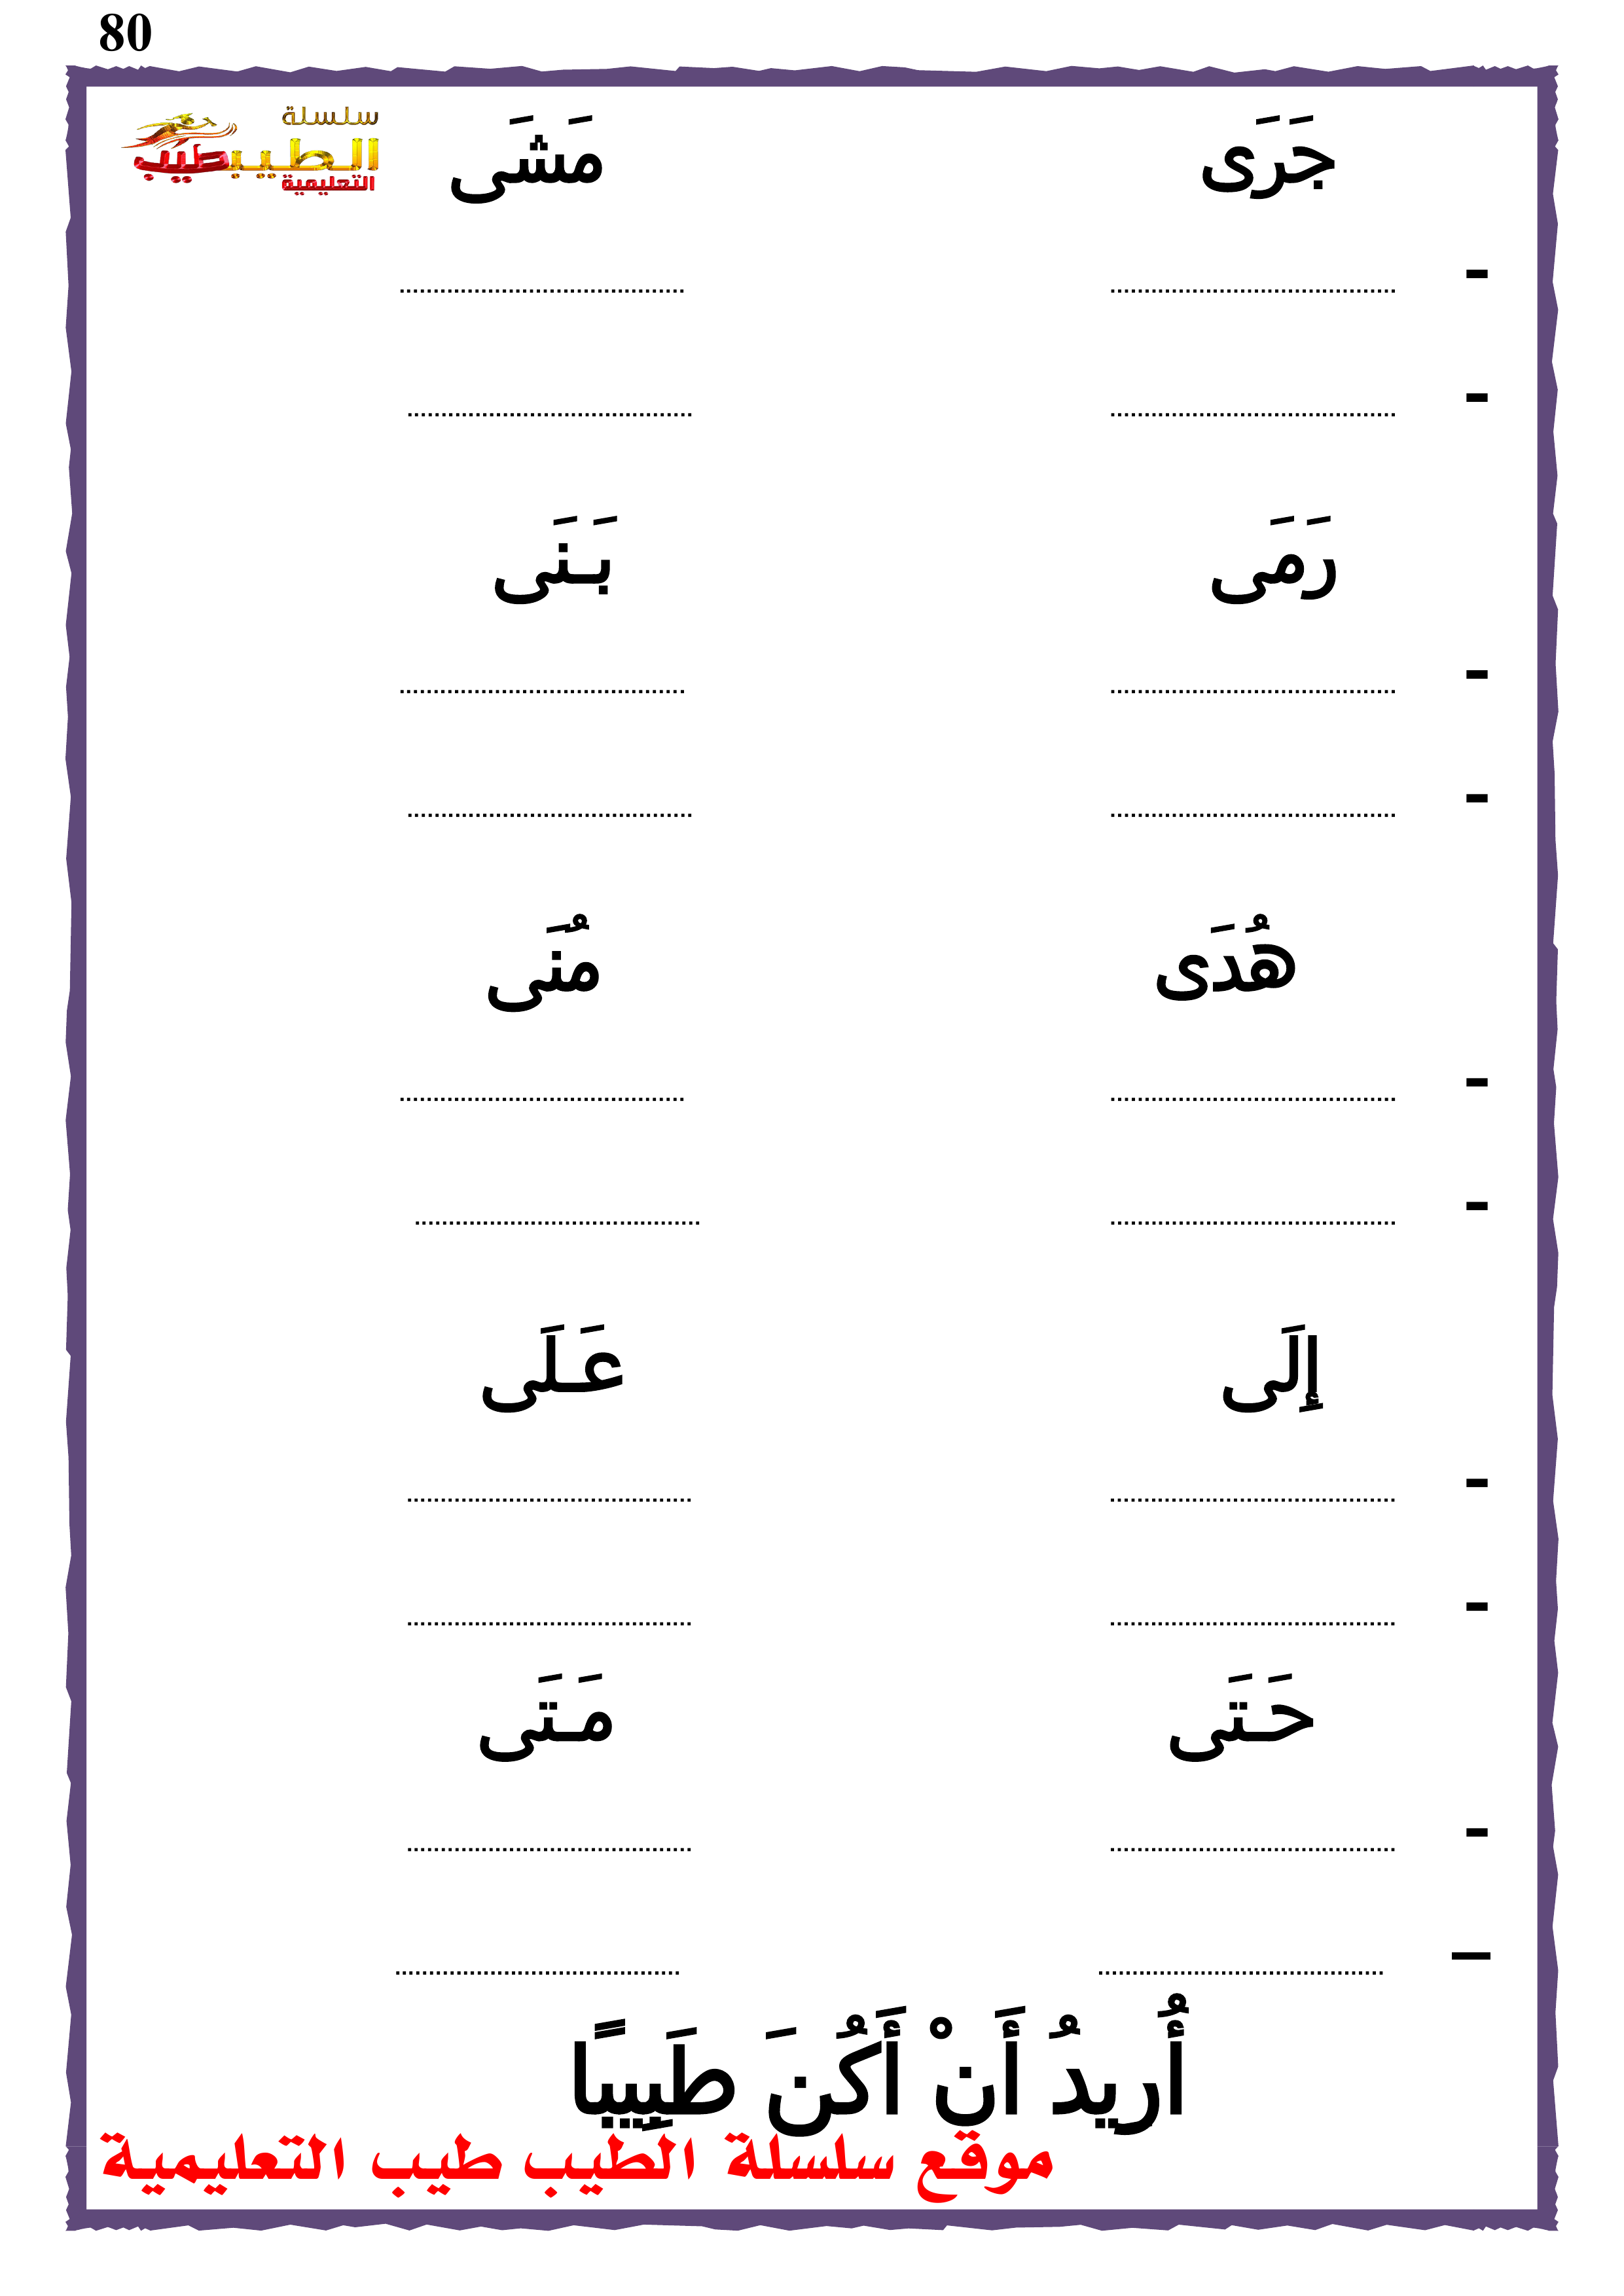 80
سلسلة
الطيب طيب
التعليمية
جَرَى مَشَى
- ........................................ ........................................
- ........................................ ........................................
رَمَى بَـنَى
- ........................................ ........................................
- ........................................ ........................................
هُدَى مُنَى
- ........................................ ........................................
- ........................................ ........................................
إِلَى عَـلَى
- ........................................ ........................................
- ........................................ ........................................
حَـتَى مَـتَى
- ........................................ ........................................
– ........................................ ........................................
أُرِيدُ أَنْ أَكُنَ طَبِيبًا
موقع سلسلة الطيب طيب التعليمية